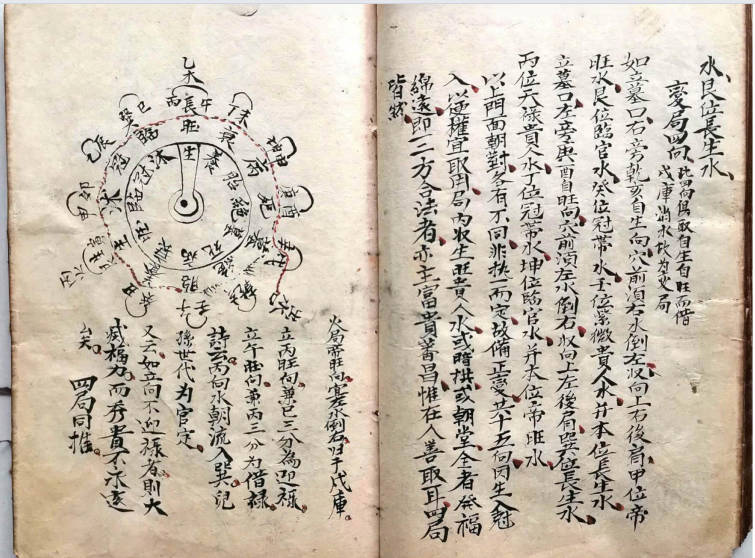 水艮位長生水
變局四向 此四局取自生自旺而借
戌庫消水故為火局
如立墓口右旁乾亥自生向穴前須右水倒左収向上右後肩甲位帝
旺水艮位臨官水癸位冠帶水壬位紫微貴人水并本位長生水
立墓口左旁庚酉自旺向穴前須左水倒右収向上左後肩巽位長生水
丙位天祿貴人水丁位冠帶水坤位臨官水并本位帝旺水
以上門面朝對各有不同非执一而定故備正變共十五向因生入尅
入以迎權宜取用局内収生旺貴人水或時拱或朝堂全者發福
綿遠即一二方合法者亦主富貴蕃昌惟在人善取耳四局
皆然
乙木
丙 長 午
丁未
坤申
庚酉
辛戌
壬子
癸丑
甲卯
乙辰
巽巳
旺 衰 病 死 墓 絶 胎 養 生 沐 冠 臨
生 養 胎 絶 墓 死 病 衰 旺 臨 冠 沐
火局帝旺向宜左水倒右归于戌庫
立丙旺向兼巳三分為迎祿
立午旺向兼丙三分為借祿
詩云丙向水朝流入巽兒
孫世代為官定
又云如立向不迎祿者則大
減福力而秀貴不永遠
矣 四局同推